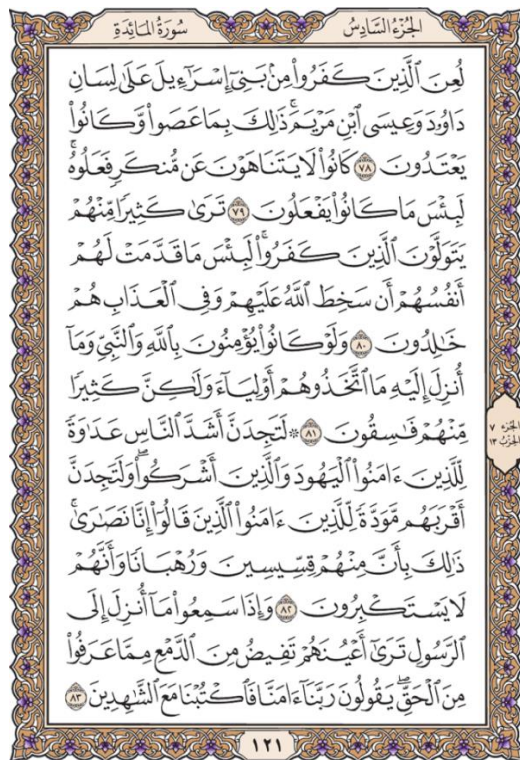 سُورَةُ المَائِدَةِ
الجُزْءُ السَّادِسُ
لُعِنَ ٱلَّذِينَ كَفَرُواْ مِنۢ بَنِيٓ إِسۡرَٰٓءِيلَ عَلَىٰ لِسَانِ
دَاوُۥدَ وَعِيسَى ٱبۡنِ مَرۡيَمَۚ ذَٰلِكَ بِمَا عَصَواْ وَّكَانُواْ
يَعۡتَدُونَ ٧٨ كَانُواْ لَا يَتَنَاهَوۡنَ عَن مُّنكَرٖ فَعَلُوهُۚ
لَبِئۡسَ مَا كَانُواْ يَفۡعَلُونَ ٧٩ تَرَىٰ كَثِيرٗا مِّنۡهُمۡ
يَتَوَلَّوۡنَ ٱلَّذِينَ كَفَرُواْۚ لَبِئۡسَ مَا قَدَّمَتۡ لَهُمۡ
أَنفُسُهُمۡ أَن سَخِطَ ٱللَّهُ عَلَيۡهِمۡ وَفِي ٱلۡعَذَابِ هُمۡ
خَٰلِدُونَ ٨٠ وَلَوۡ كَانُواْ يُؤۡمِنُونَ بِٱللَّهِ وَٱلنَّبِيِّ وَمَآ
أُنزِلَ إِلَيۡهِ مَا ٱتَّخَذُوهُمۡ أَوۡلِيَآءَ وَلَٰكِنَّ كَثِيرٗا
مِّنۡهُمۡ فَٰسِقُونَ ٨١ ۞ لَتَجِدَنَّ أَشَدَّ ٱلنَّاسِ عَدَٰوَةٗ
لِّلَّذِينَ ءَامَنُواْ ٱلۡيَهُودَ وَٱلَّذِينَ أَشۡرَكُواْۖ وَلَتَجِدَنَّ
أَقۡرَبَهُم مَّوَدَّةٗ لِّلَّذِينَ ءَامَنُواْ ٱلَّذِينَ قَالُوٓاْ إِنَّا نَصَٰرَىٰۚ
ذَٰلِكَ بِأَنَّ مِنۡهُمۡ قِسِّيسِينَ وَرُهۡبَانٗا وَأَنَّهُمۡ
لَا يَسۡتَكۡبِرُونَ ٨٢ وَإِذَا سَمِعُواْ مَآ أُنزِلَ إِلَى
ٱلرَّسُولِ تَرَىٰٓ أَعۡيُنَهُمۡ تَفِيضُ مِنَ ٱلدَّمۡعِ مِمَّا عَرَفُواْ
مِنَ ٱلۡحَقِّۖ يَقُولُونَ رَبَّنَآ ءَامَنَّا فَٱكۡتُبۡنَا مَعَ ٱلشَّٰهِدِينَ ٨٣
الجزء ٧
الحزب ١٣
١٢١